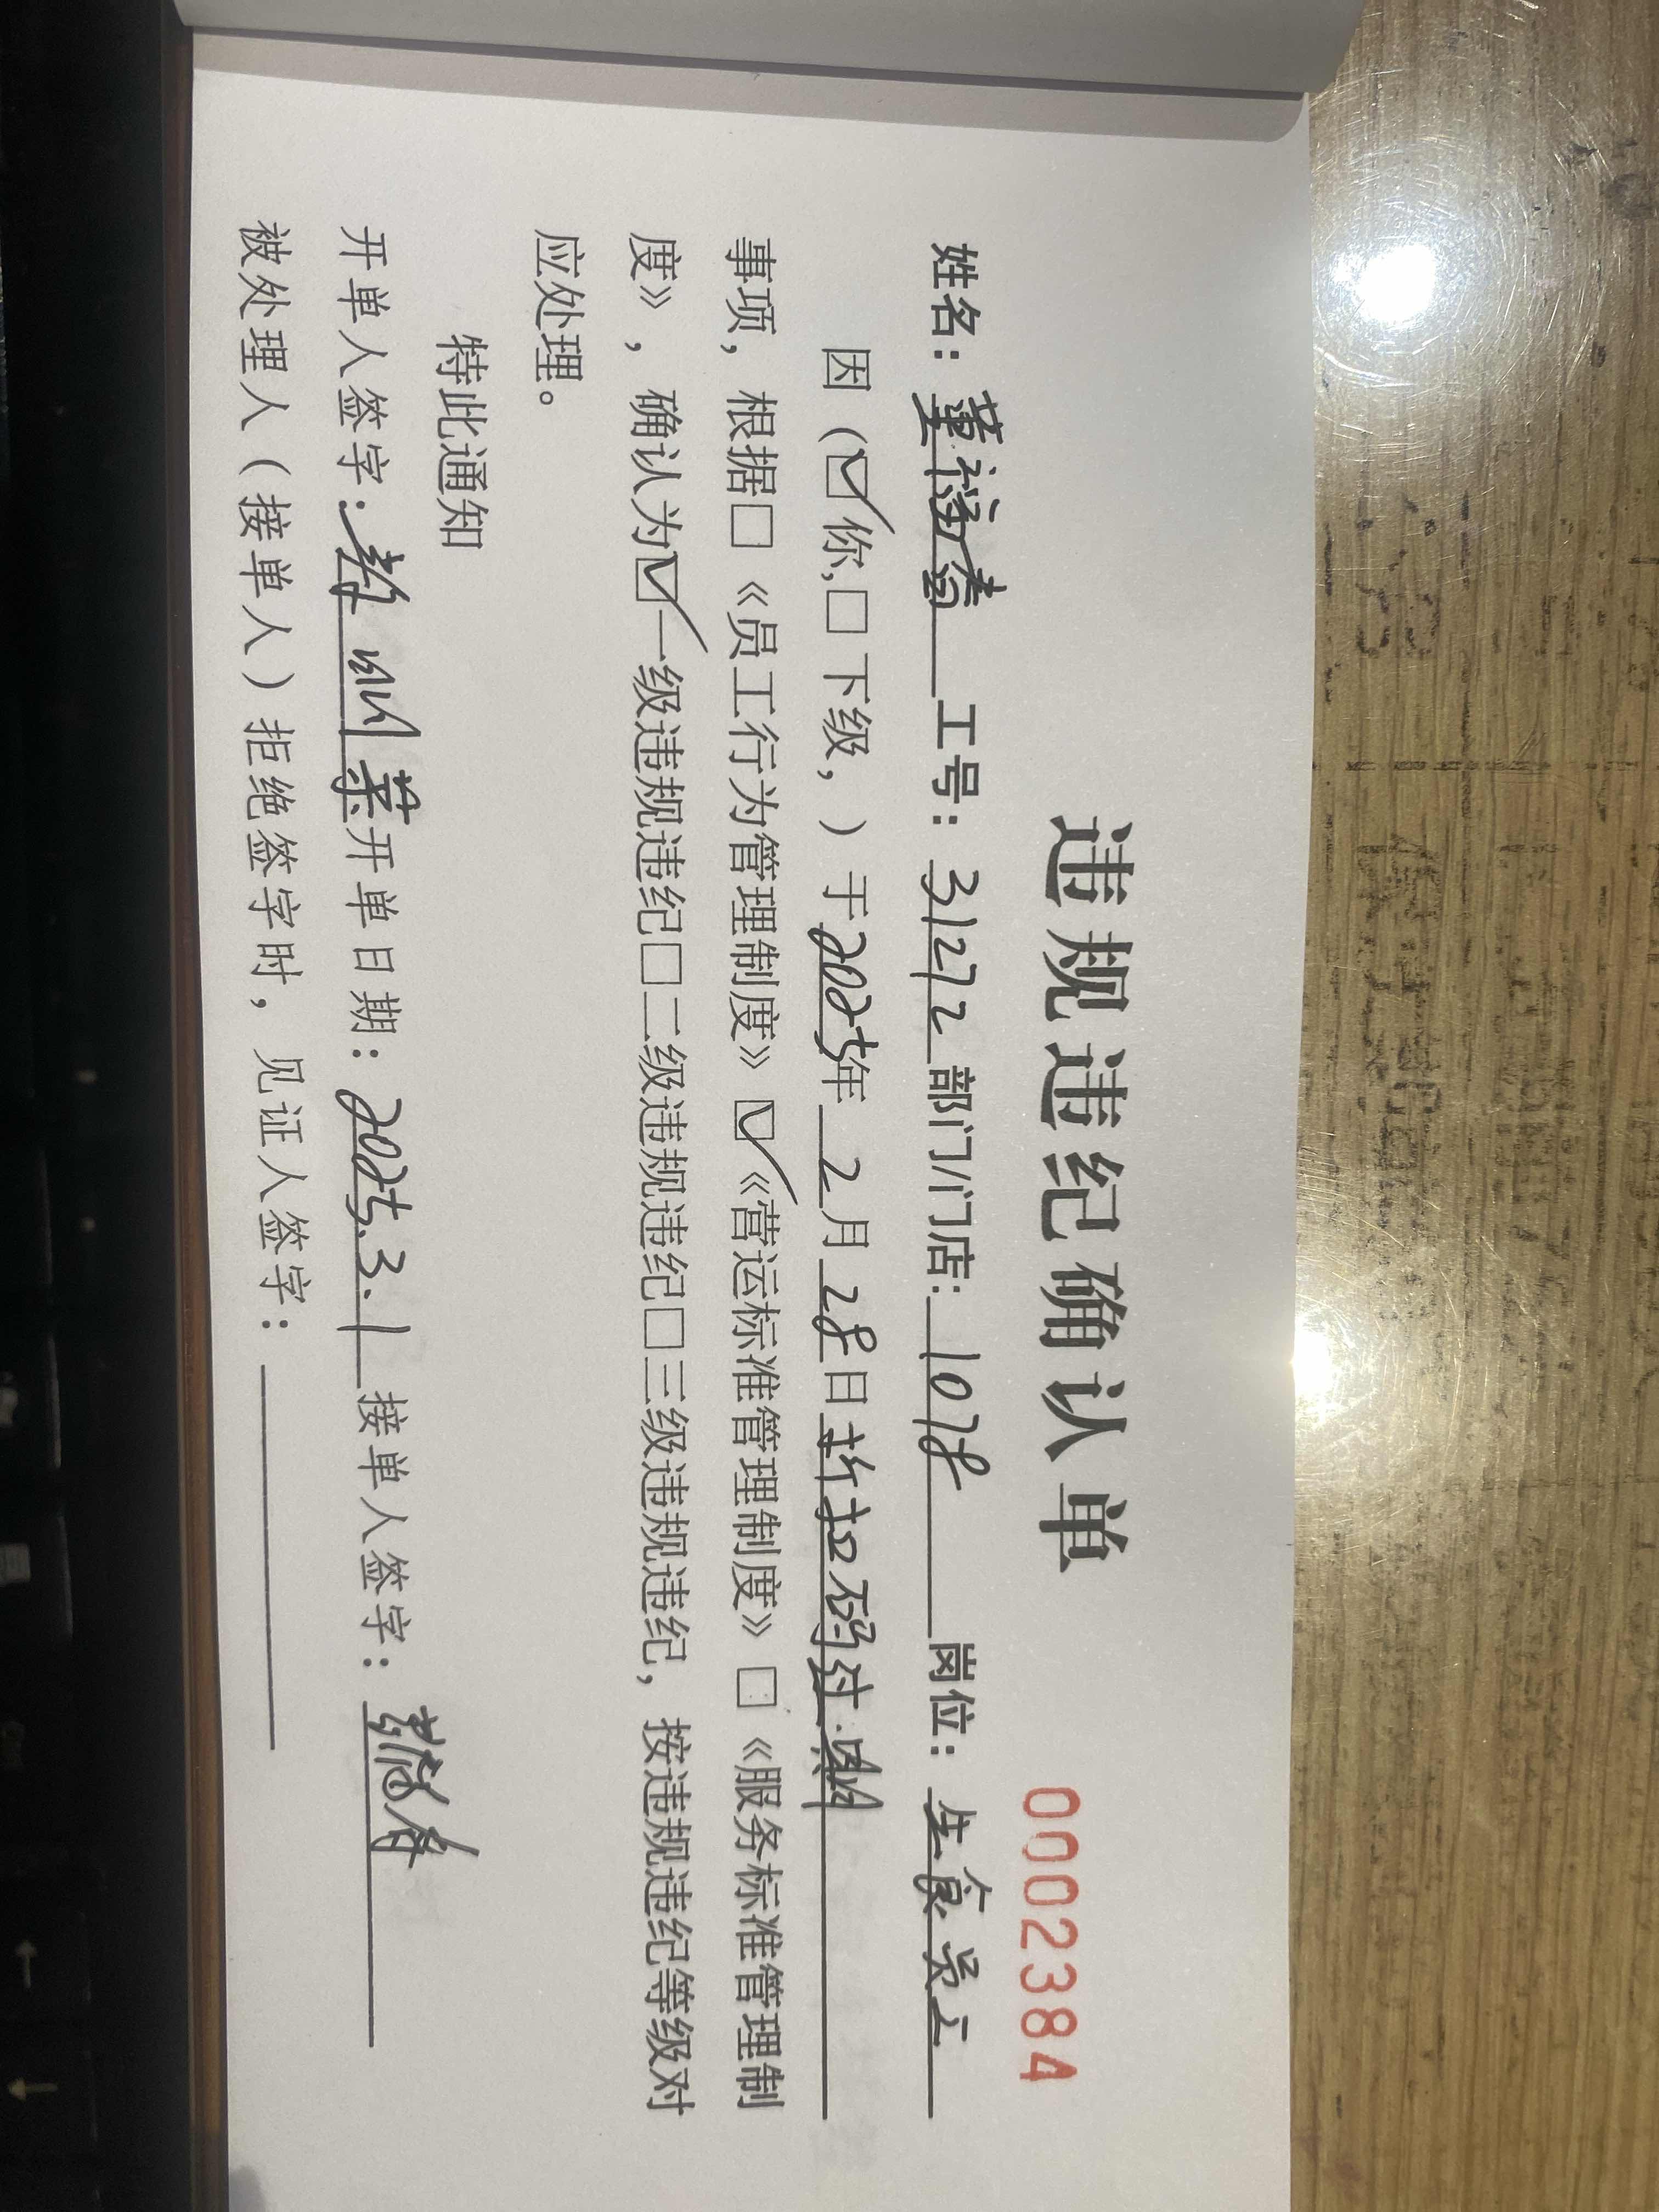 违规违纪确认单
00002384
姓名：董 工号：31272 部门/门店：1078 岗位：生食员工
因（☑你,□下级，）于2025年 2 月 28 日折扣码过期
事项，根据□《员工行为管理制度》☑《营运标准管理制度》□《服务标准管理制
度》，确认为☑一级违规违纪□二级违规违纪□三级违规违纪，按违规违纪等级对
应处理。
特此通知
开单人签字： 开单日期：2025.3.1 接单人签字：
被处理人（接单人）拒绝签字时，见证人签字：